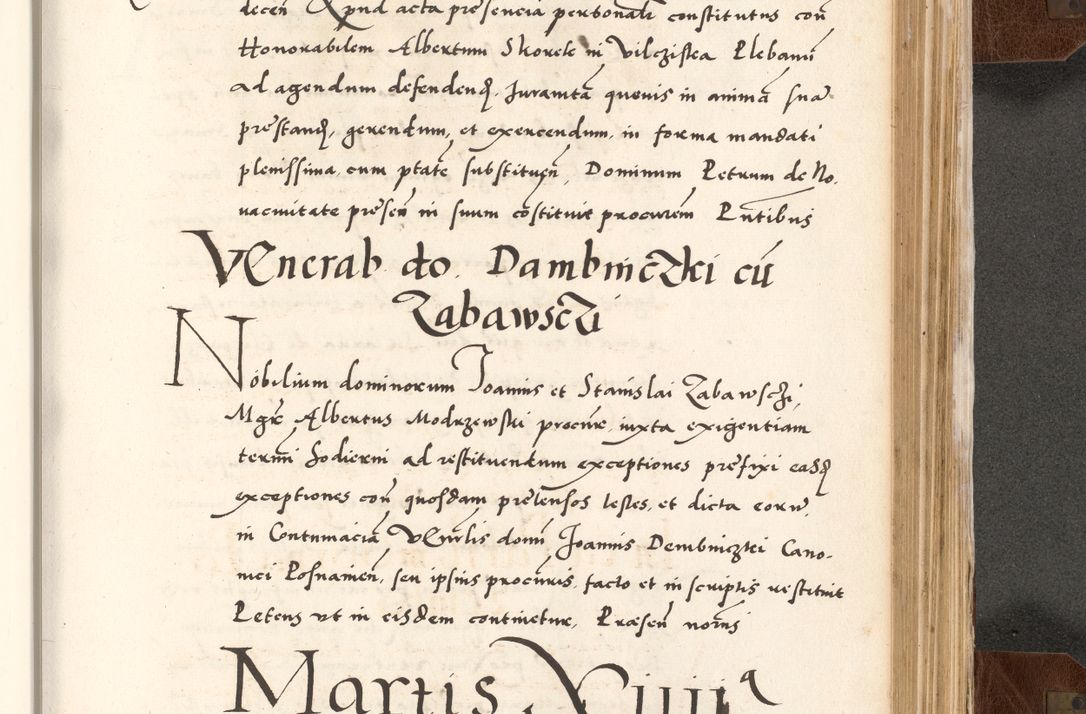 decen Xpnd acta presencia personali constitutus con
Honorabilem Albertum Skorek in Vilczistea Plebanu
ad agendum defendend. Juramta quevis in anima sua
prestand, gerendum, et exercendum, in forma mandati
plenissima, cum ptate substituen, Dominum Petrum de No,
vacivitate presen in suum costituit procurem Pntibus
VEnerab. do. Dambinczki cu
Zabawsczi
Nobilium dominorum Joannis et Stanislai Zabawschi,
Mgr Albertus Modrzewski procur, iuxta exigentiam
termi hodierni ad restituendum exceptiones prefixi easd
exceptiones con quosdam pretensos testes, et dicta eorum,
in Contumacia VEnrlis domi Joannis Dembniczki Cano-
nici Posnanien, seu ipsius procuris, facto et in scriptis restituit
Petens ut in eisdem continetur, Praesen
Martis Xiiii a